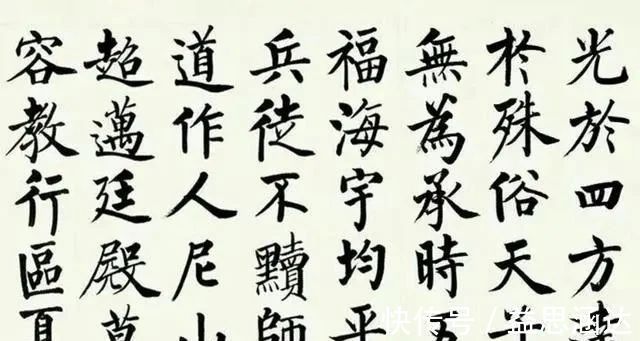 光於四方
於殊俗天
無為承時
福海宇均平
兵徒不黷師
道作人尼山
超邁廷殿
容教行區夏
快传号/益思涵达